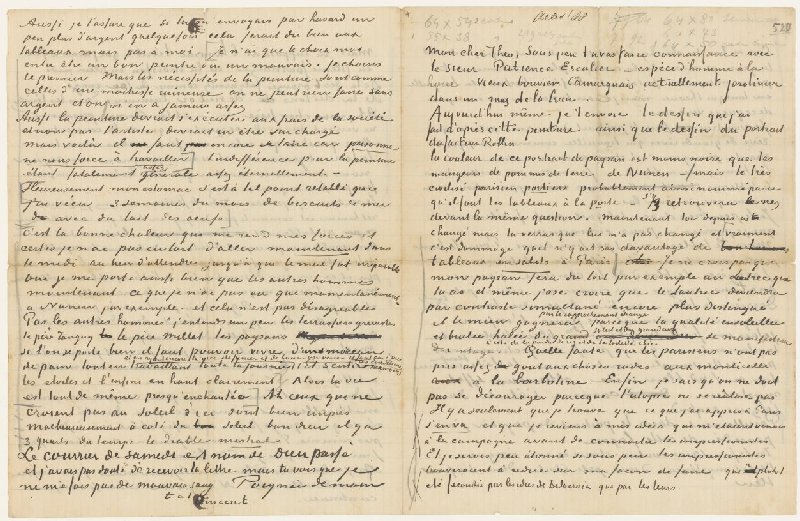 Aussi je t'assure que si tu m'envoyais par hasard un
peu plus d'argent quelquefois cela ferait du bien aux
tableaux mais pas à moi. je n'ai que le choix moi
entre être un bon peintre ou un mauvais. Je choisis
le premier. Mais les nécessités de la peinture sont comme
celles d'une maitresse ruineuse on ne peut rien faire sans
argent et on n'en a jamais assez
Aussi la peinture devrait s'executer aux frais de la société
et non pas l'artiste devrait en être surchargé
mais voilà il faut encore se taire car personne
ne nous force à travailler l'indifférence pour la peinture
étant fatalement assez générale assez éternellement.
Heureusement mon estomac s'est à tel point rétabli que
j'ai vécu 3 semaines du mois de biscuits de mer
avec du lait des oeufs.
C'est la bonne chaleur qui me rend mes forces et
certes je n'ai pas eu tort d'aller maintenant dans
le midi au lieu d'attendre jusqu'à que le mal fut irréparable
oui je me porte aussi bien que les autres hommes
maintenant ce que je n'ai pas eu que momentanement
à Nuenen par exemple. et cela n'est pas désagréable
Par les autres hommes j'entends un peu les terrassiers grevistes
le père Tanguy le père Millet les paysans
si l'on se porte bien il faut pouvoir vivre d'un morceau
de pain tout en travaillant toute la journée
les etoiles et l'infini en haut clairement. Alors la vie
est tout de même presqu'enchantée Ah ceux qui ne
croient pas au soleil d'ici sont bien impies
malheureusement à coté du soleil bon dieu il y a
3 quarts du temps le diable mistral.
Le courrier de samedi est nom de Dieu passé
et j'avais pas douté de recevoir ta lettre mais tu vois que je
ne me fais pas de mauvais sang Poignée de main
t. à t.
Vincent
520
mon cher Theo, Sous peu tu vas faire connaissance avec
le sieur Patience Escalier – espèce d'homme à la
houe vieux bouvier Camarguais actuellement jardinier
dans un mas de la Crau.
Aujourd'hui même je t'envoie le dessin que j'ai
fait d'après cette peinture. ainsi que le dessin du portrait
du facteur Rollin
la couleur de ce portrait de paysan est moins noire que les
mangeurs de pommes de terre de Nuenen – mais le très
civilisé parisien Portier probablement ainsi nommé parce
qu'il fout les tableaux à la porte s'y retrouvera le nez
devant la même question. maintenant toi depuis as
changé mais tu verras que lui n'a pas changé et vraiment
c'est dommage qu'il n'y ait pas davantage de
tableaux en sabots à Paris Je ne crois pas que
mon paysan fera du tort par exemple au Lautrec que
tu as et même j'ose croire que le Lautrec deviendra
par contraste simultané encore plus distingué
et le mien gagnera par le rapprochement étrange parceque la qualité ensoleillée
et brulée
davantage. Quelle faute que les parisiens n'ont pas
pris assez gout aux choses rudes aux monticelli
à la barbotine Enfin je sais qu'on ne doit
pas se décourager parceque l'utopie ne se réalise pas
Il y a seulement que je trouve que ce que j'ai appris à Paris
s'en va et que je reviens à mes idées qui m'étaient venues
à la campagne avant de connaitre les impressionistes
Et je serais peu étonné si sous peu les impressionistes
trouveraient à redire sur ma façon de faire qui a plutôt
été fécondée par les idees de Delacroix que par les leurs